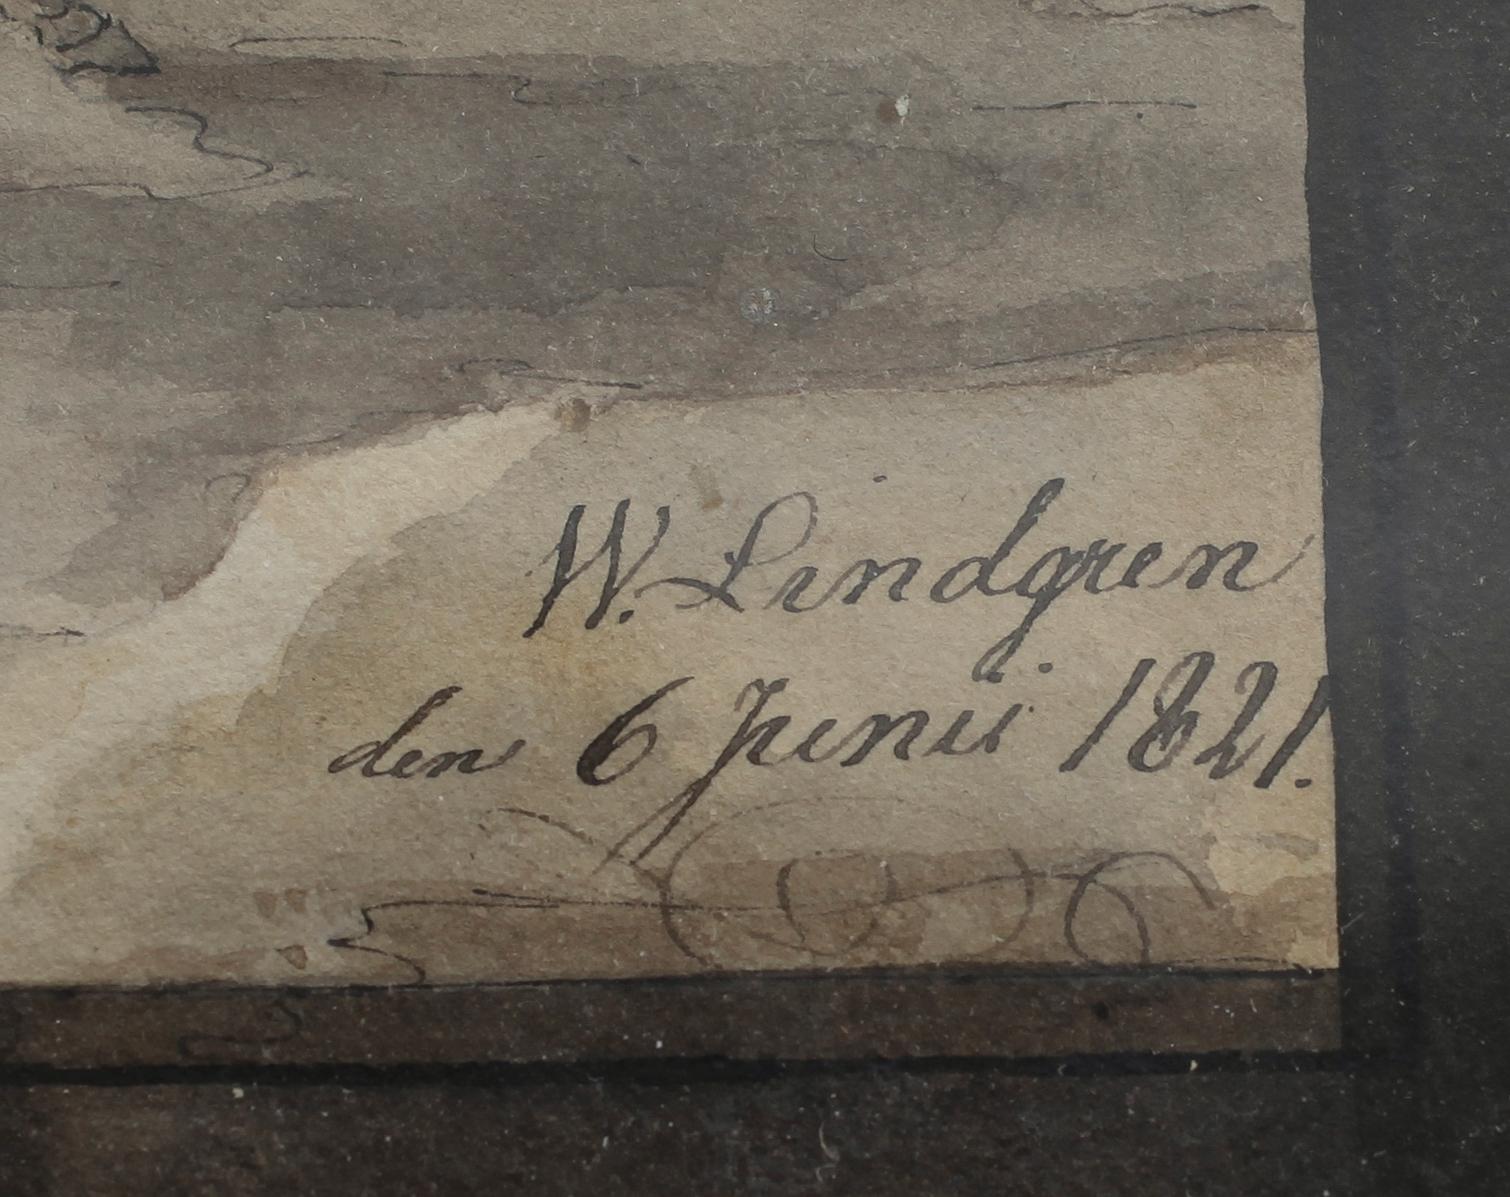 W. Lindgren
den 6 Junii 1821.